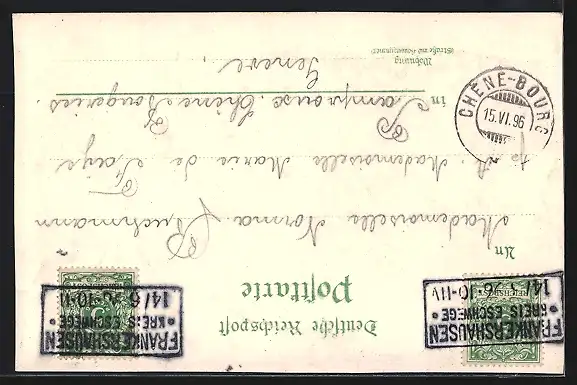 Deutsche Reichspost
Postkarte
FRANKERSHAUSEN
* KREIS ESCHWEGE *
14/6 96·10-11V
FRANKERSHAUSEN
* KREIS ESCHWEGE *
14/6 96·10-11V
REICHSPOST
An Mademoiselle Norma
Mademoiselle Marie de
in Chêne Bougeries.
Genève.
Wohnung
(Straße und Hausnummer)
CHÊNE-BOURG
15.VI.96